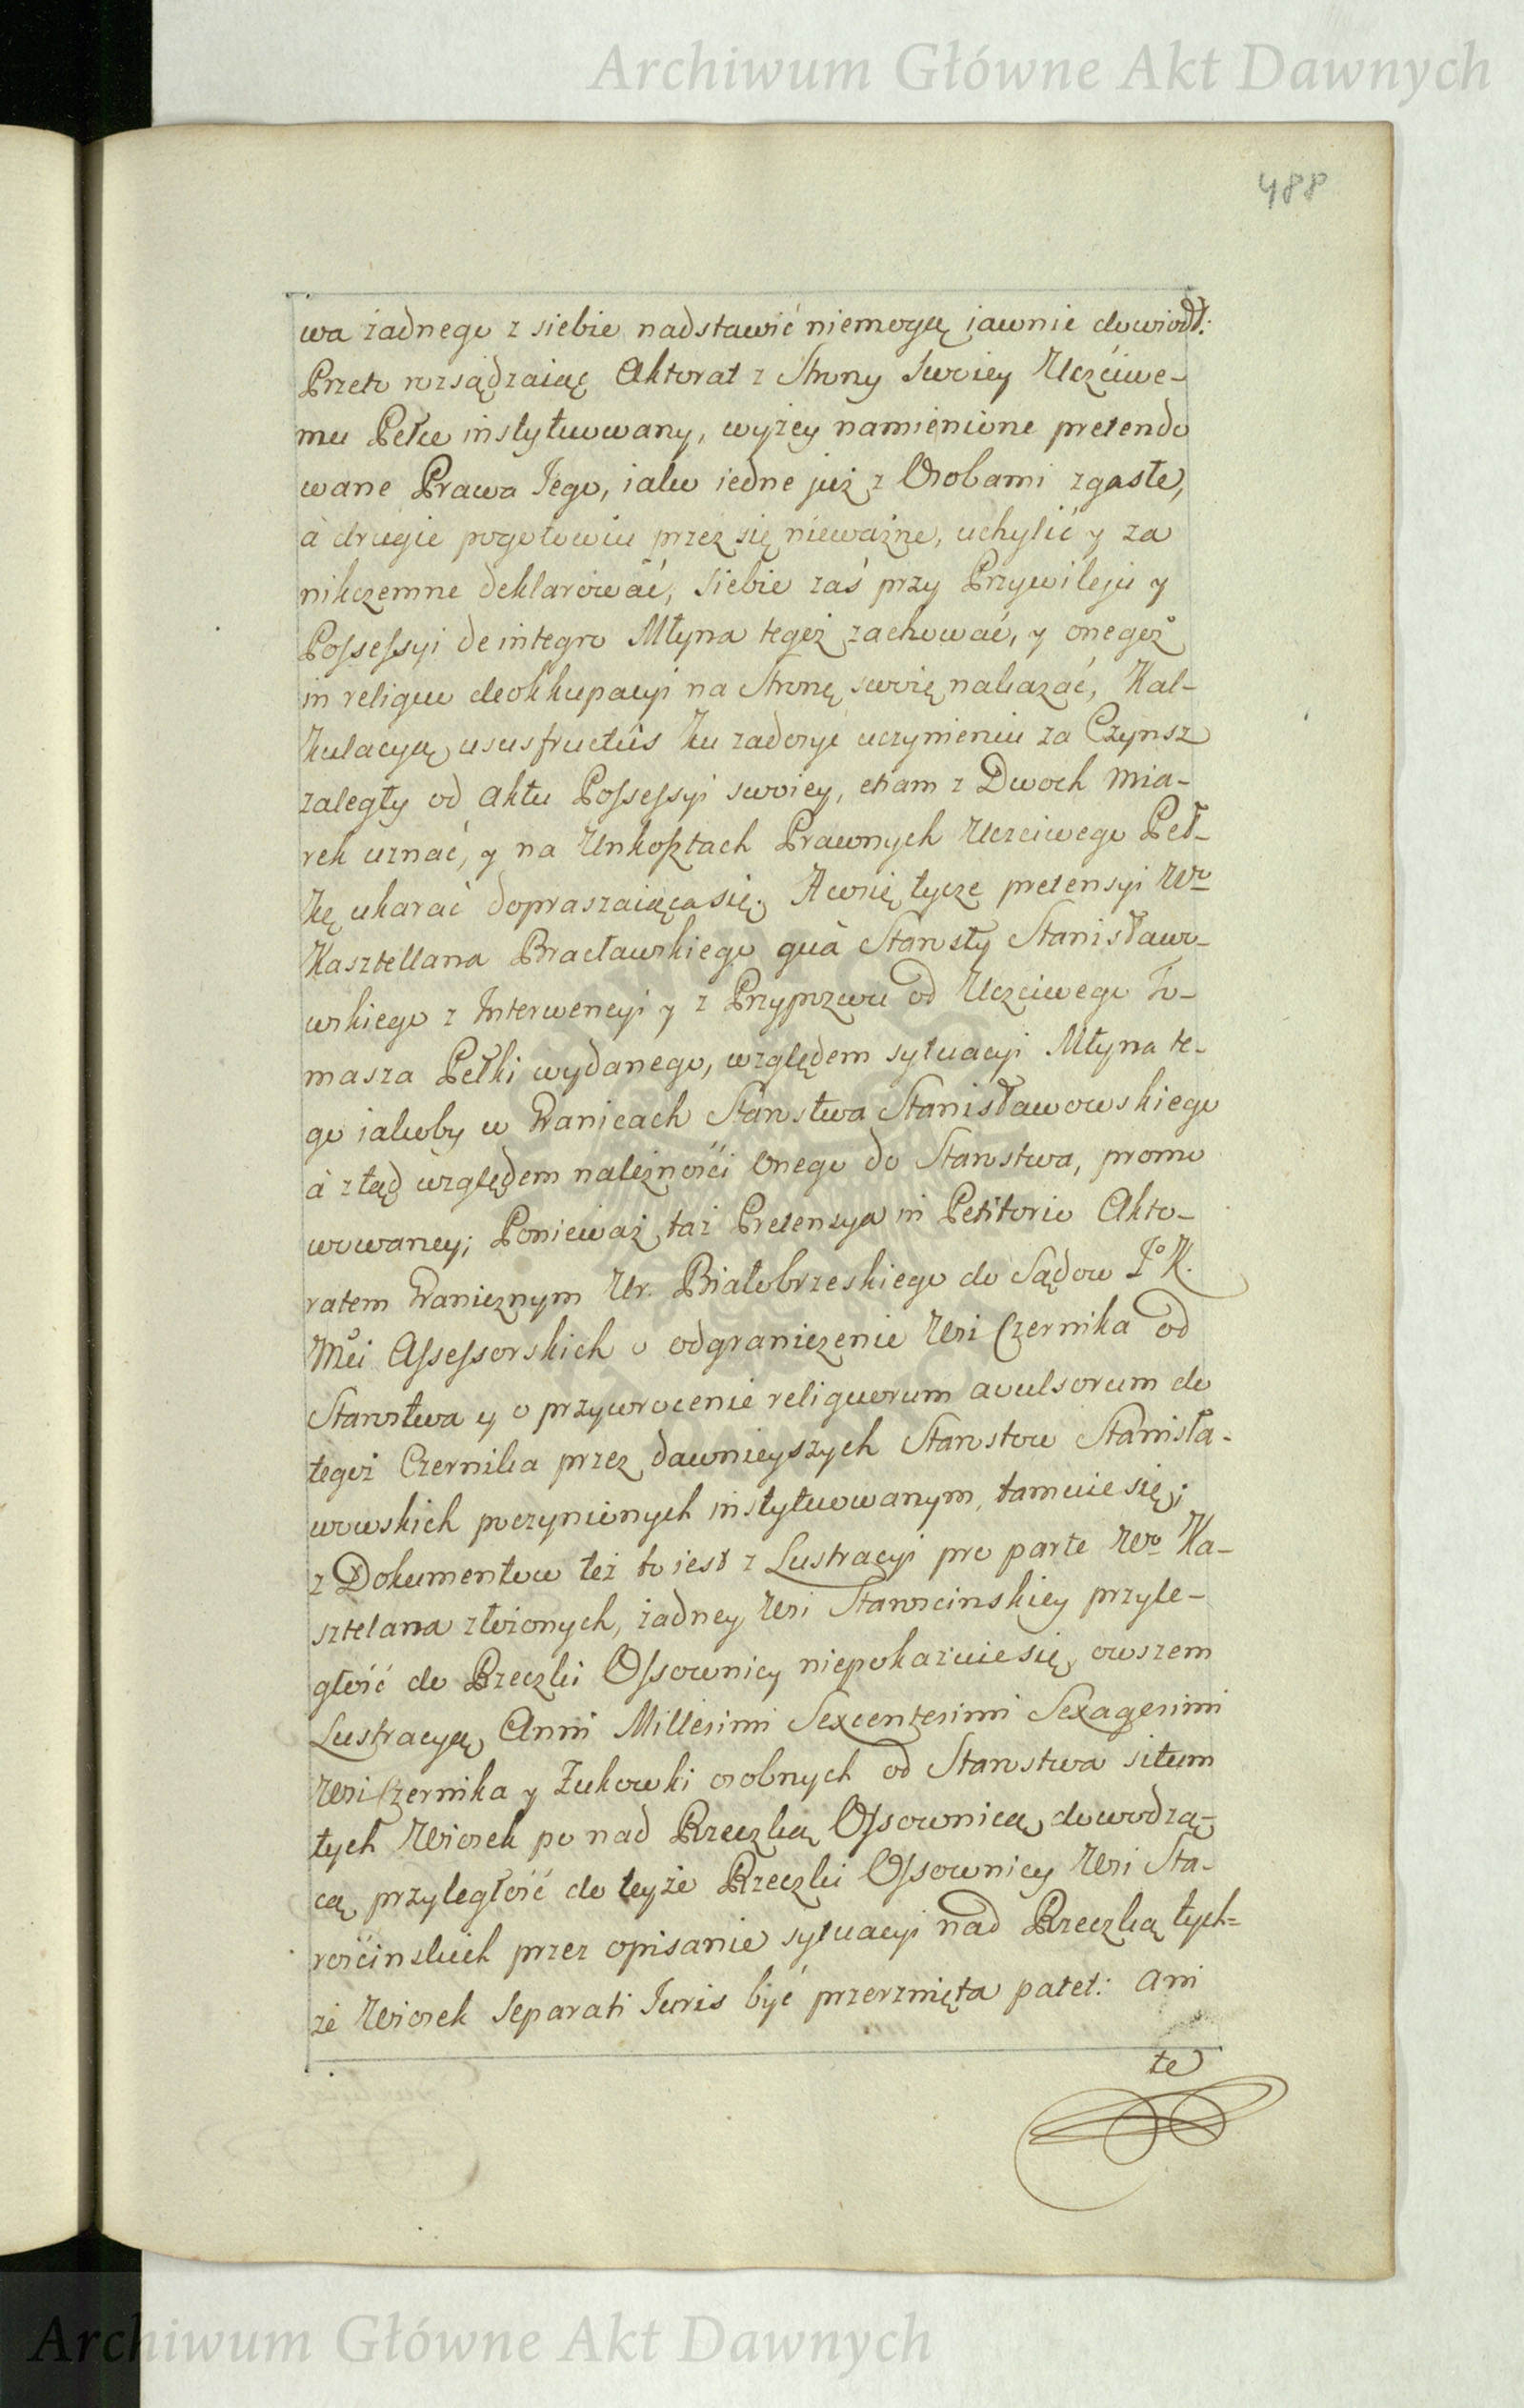 Archiwum Główne Akt Dawnych
488
wa żadnego z siebie nadstawić niemogą iawnie dowiodł:
Przeto rozsądzaiąc Aktorat z Strony Swoiey Uczciwe-
mu Pełce instytuowany, wyżey namienione pretendo
wane Prawa Iego, iako iedne już z Osobami zgasłe,
à drugie pogotowiu przez się nieważne, uchylić y za
nikczemne deklarować, siebie zaś przy Przywileju y
Possessyi de integro Młyna tegoż zachować, y onegoż
in reliquo deokkupacyi na Stronę swoię nakazać, Kal-
kulacyą ususfructûs ku zadosyć uczynieniu za Czynsz
zaległy od aktu Possessyi swoiey, etiam z Dwoch mia-
rek uznać, y na Unkosztach Prawnych Uczciwego Peł-
kę ukarać dopraszaiąca się. A co się tycze pretensyi Wo
Kasztellana Bracławskiego quâ Starosty Stanisławo-
wskiego z Interwencyi y z Przypozwu od Uczciwego To-
masza Pełki wydanego, względem sytuacyi Młyna te-
go iakoby w Granicach Starostwa Stanisławowskiego
à ztąd względem należności Onego do Starostwa, promo
wowaney; Ponieważ taż Pretensya in Petitorio Akto-
ratem Granicznym Ur. Białobrzeskiego do Sądow Jo K.
Mci Assessorskich o odgraniczenie Wsi Czernika od
Starostwa y o przywrocenie reliquorum avulsorum do
tegoż Czernika przez dawnieyszych Starostow Stanisła-
wowskich poczynionych instytuowanym, tamuie się;
z Dokumentow też to iest z Lustracyi pro parte Wo Ka-
sztelana złożonych, żadney Wsi Starościnskiey przyle-
głość do Rzeczki Ossownicy niepokazuie się, owszem
Lustracyą Anni Millesimi Sexcentesimi Sexagesimi
Wsi Czernika y Żukowki osobnych od Starostwa situm
tych Wiosek po nad Rzeczką Ossownicą dowodzą-
cą przyległość do teyże Rzeczki Ossownicy Wsi Sta-
rościnskich przez opisanie sytuacyi nad Rzeczką tych-
że Wiosek Separati Iuris być przerznięta patet: ani
te
Archiwum Główne Akt Dawnych